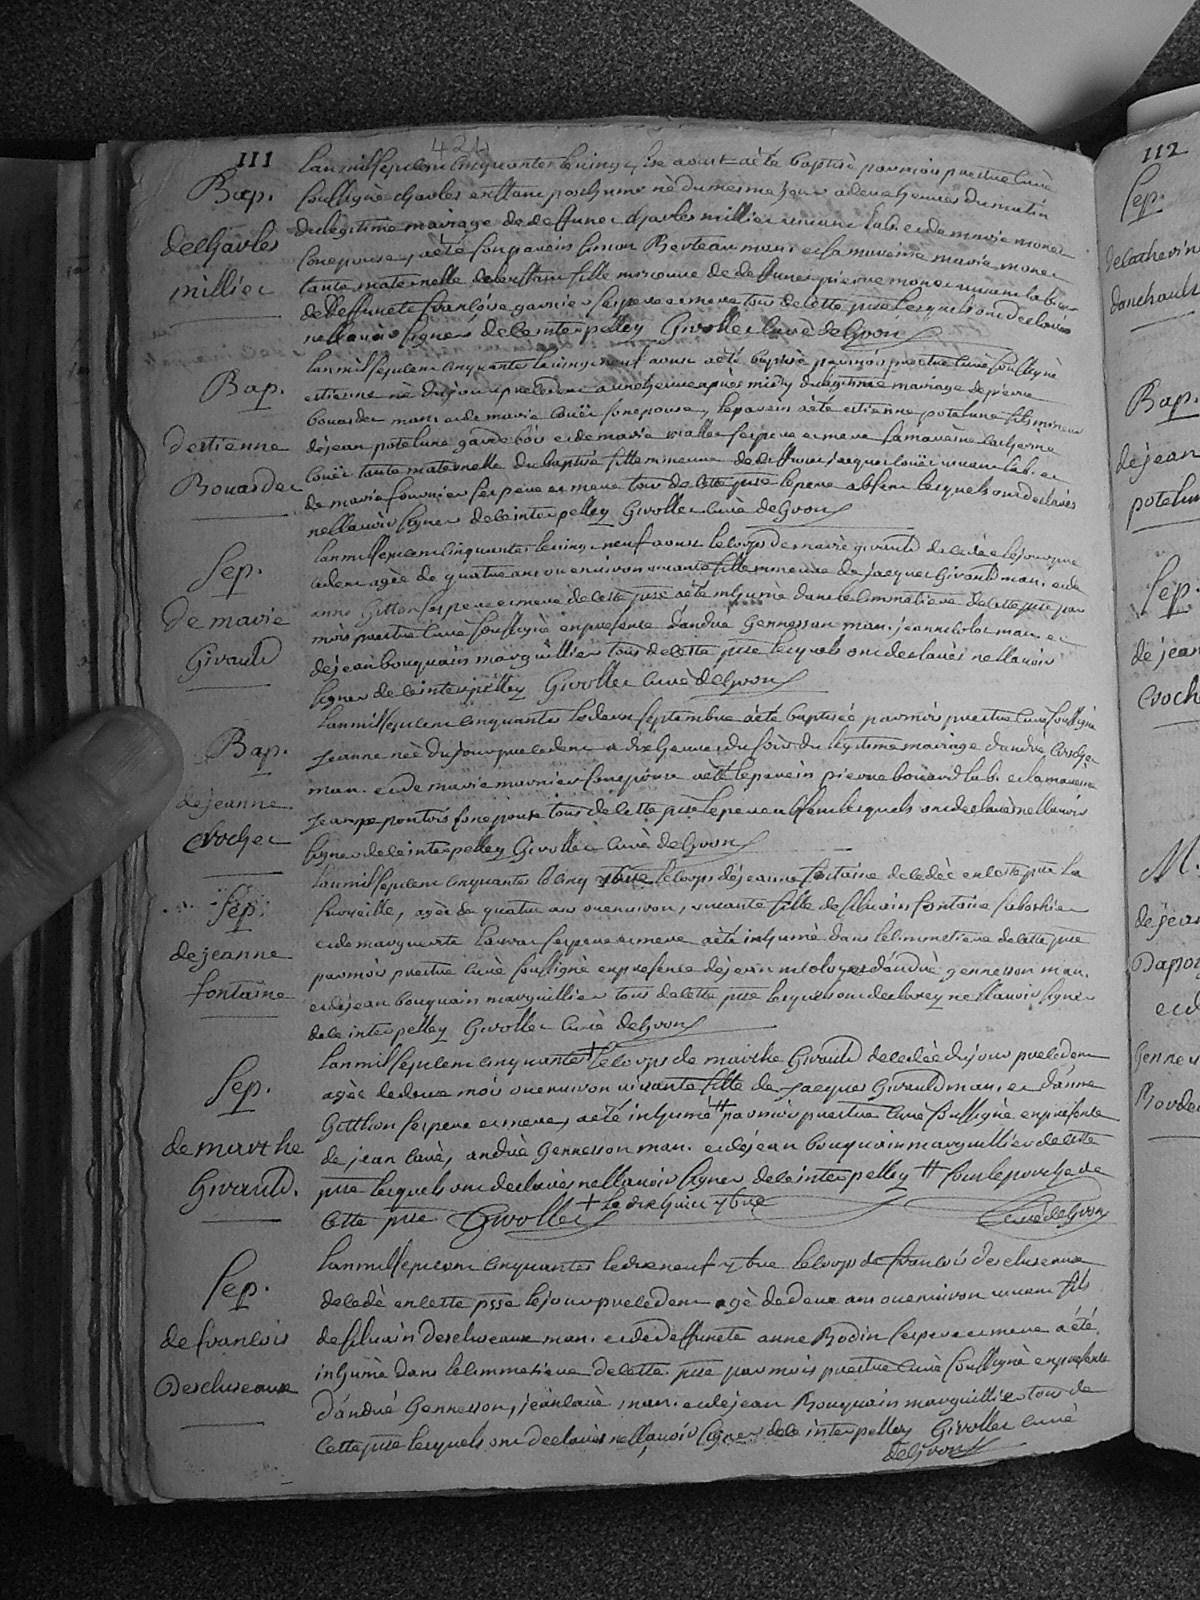 111
421
Bap.
de charles
millier
Lan mil sept cent cinquante le vingt six aoust a été baptisé par moi prestre curé
soussigné charles enfant posthume né du mesme jour a deux heures du matin
du légitime mariage de deffunct charles millier vivant lab. et de marie monet
son epouse, a été son parain simon Berteau man. et sa maraine marie monet
tante maternelle de l'enfant fille mineure de deffunct pierre monet vivant lab. et
de deffuncte francoise garnier ses pere et mere tous de cette psse lesquels ont declarés
ne scavoir signer de ce interpelley Givollet curé de Givon
Bap.
destienne
Bouardet
Lan mil sept cent cinquante le vingt neuf aoust a été baptisé par moi prestre curé soussigné
estienne né du jour precedent a une heure après midy du légitime mariage de pierre
bouardet man. et de marie Couët son epouse, le parain a été estienne potelune fils mineur
de jean potelune garde bois et de marie viallet ses pere et mere la maraine catherine
Couët tante maternelle du baptisé fille mineure de deffunct jacques Couët vivant lab. et
de marie fournier ses pere et mere tous de cette psse le pere absent lesquels ont declarés
ne scavoir signer de ce interpelley Givollet curé de Givon
Sep.
de marie
Givauld
Lan mil sept cent cinquante le vingt neuf aoust le corps de marie givauld decedée le jour prece
dent agée de quatre ans ou environ vivante fille mineure de jacques Givauld man. et de
anne Gitton ses pere et mere de cette psse a été inhumé dans le cimmetiere de cette psse par
moi prestre curé soussigné en presence d'andré Gennesson man. jean nicolot man. et
de jean bouquain marguillier tous de cette psse lesquels ont declarés ne scavoir
signer de ce interpelley Givollet curé de Givon
Bap.
de jeanne
Crochet
Lan mil sept cent cinquante le deux septembre a été baptisée par moi prestre curé soussigné
jeanne née du jour precedent a dix heures du soir du legitime mariage d'andré Crochet
man. et de marie marnier son epouse a été le parain pierre bouard lab. et la maraine
jeanne pontois son epouse tous de cette psse le pere absent lesquels ont declarés ne scavoir
signer de ce interpelley Givollet curé de Givon
Sep.
de jeanne
fontaine
Lan mil sept cent cinquante le cinq 7bre le corps de jeanne fontaine decedée en cette psse la
surveille, agée de quatre ans ou environ, vivante fille de silvain fontaine sabothier
et de marguerite ses pere et mere a été inhumé dans le cimmetiere de cette psse
par moi prestre curé soussigné en presence de jean nicolot et d'andré gennesson man.
et de jean bouquain marguillier tous de cette psse lesquels ont declarey ne scavoir signer
de ce interpelley Givollet curé de Givon
Sep.
de marthe
Givauld.
Lan mil sept cent cinquante + le corps de marthe Givauld decedée du jour precedent
agée de deux mois ou environ vivante fille de jacques Givauld man. et d'anne
Gittion ses pere et mere, a été inhumé # par moi prestre curé soussigné en presence
de jean cavé, andré Gennesson man. et de jean bouquain marguillier de cette
psse lesquels ont declarés ne scavoir signer de ce interpelley # sous le porche de
cette psse Givollet + le dix huict 7bre curé de Givon
Sep.
de francois
Descluseaux
Lan mil sept cent cinquante le dix neuf 7bre le corps de francois Descluseaux
decedé en cette psse le jour precedent agé de deux ans ou environ vivant fils
de silvain Descluseaux man. et de deffuncte anne Bodin ses pere et mere a été
inhumé dans le cimmetiere de cette psse par moi prestre curé soussigné en presence
d'andré Gennesson, jean cavé, man. et de jean Bouquain marguillier tous de
cette psse lesquels ont declarés ne scavoir signer de ce interpelley Givollet curé
de Givon
112
Sep.
de catherine
danchault
Bap.
de jean
potelun
Sep.
de jean
Croch
M.
de jean